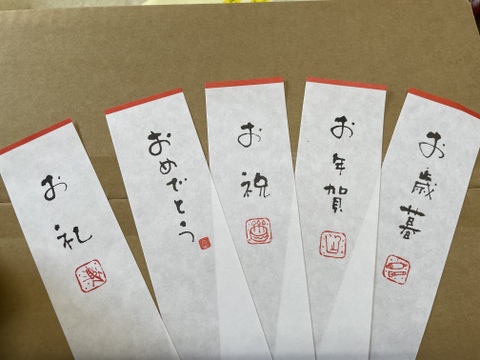 お礼
おめでとう
お祝
お年賀
お歳暮